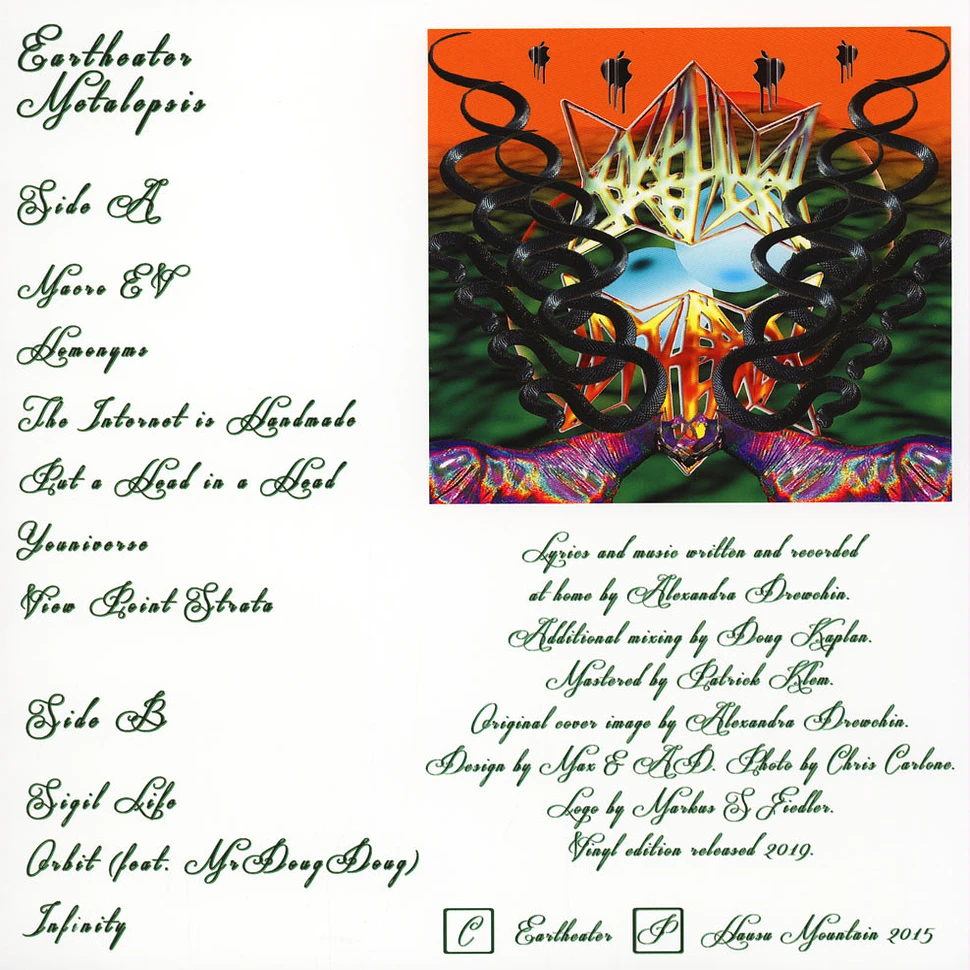 Eartheater
Metalepsis
Side A
Macro EV
Homonyms
The Internet is Handmade
Put a Head in a Head
Youniverse
View Point Strata
Side B
Sigil Life
Orbit (feat. MrDougDoug)
Infinity
Lyrics and music written and recorded
at home by Alexandra Drewchin.
Additional mixing by Doug Kaplan.
Mastered by Patrick Klem.
Original cover image by Alexandra Drewchin.
Design by Max & A.D. Photo by Chris Carlone.
Logo by Markus S. Fiedler.
Vinyl edition released 2019.
C Eartheater P Hausu Mountain 2015